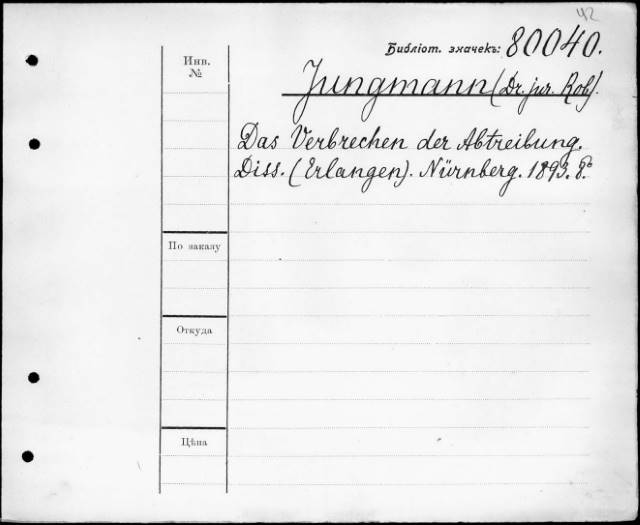 42
Библіот. значекъ: 80040.
Инв.
№
Jungmann (Dr. jur. Rob).
Das Verbrechen der Abtreibung.
Diss. (Erlangen). Nürnberg. 1893. 8º.
По заказу
Откуда
Цѣна